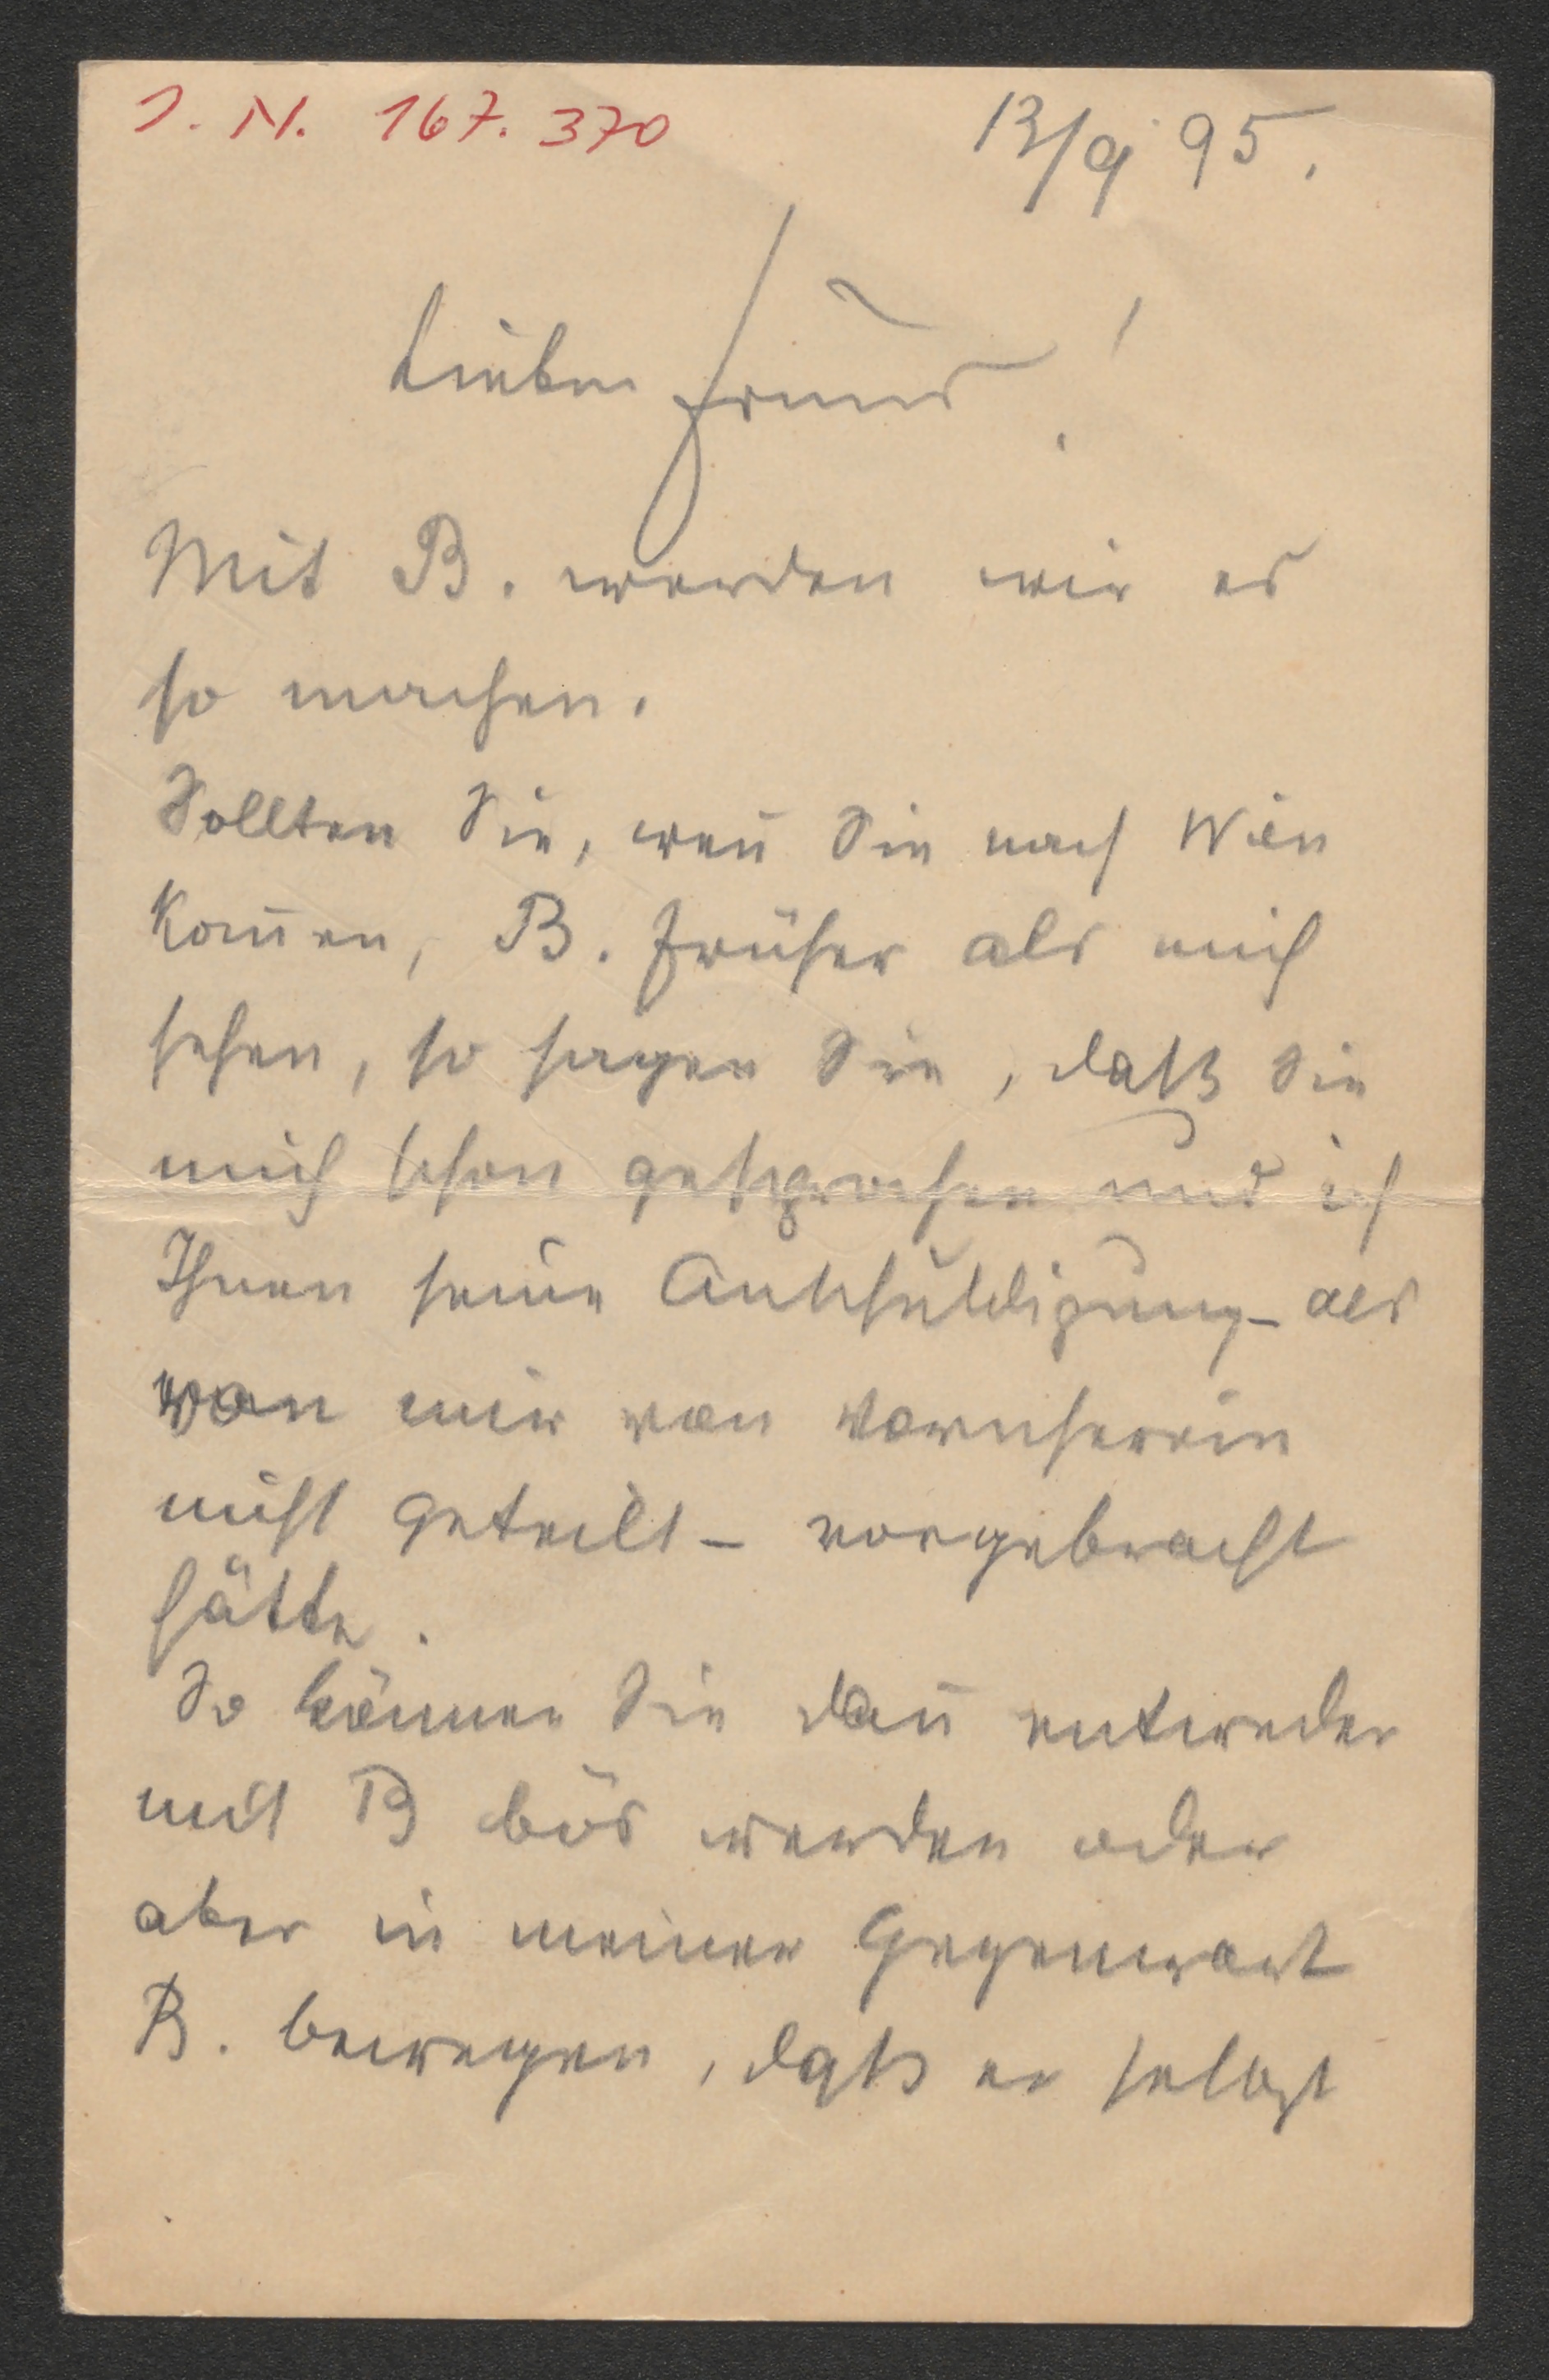 I. N. 167.370
13/9 95.
Lieber Freund!
Mit B. werden wir es
so machen.
Sollten Sie, weñ Sie nach Wien
kom̄en, B. früher als mich
sehen, so sagen Sie, daß Sie
mich schon gesprochen und ich
Ihnen seine Anschuldigung – als
von mir von vornherein
nicht geteilt – vorgebracht
hätte.
So können Sie dañ entweder
mit B bös werden oder
aber in meiner Gegenwart
B. bewegen, daß er selbst